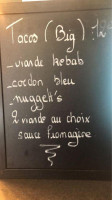 Tacos (Big) : 12
- viande kebab
- cordon bleu
- nuggett's
2 viande au choix
sauce fromagère